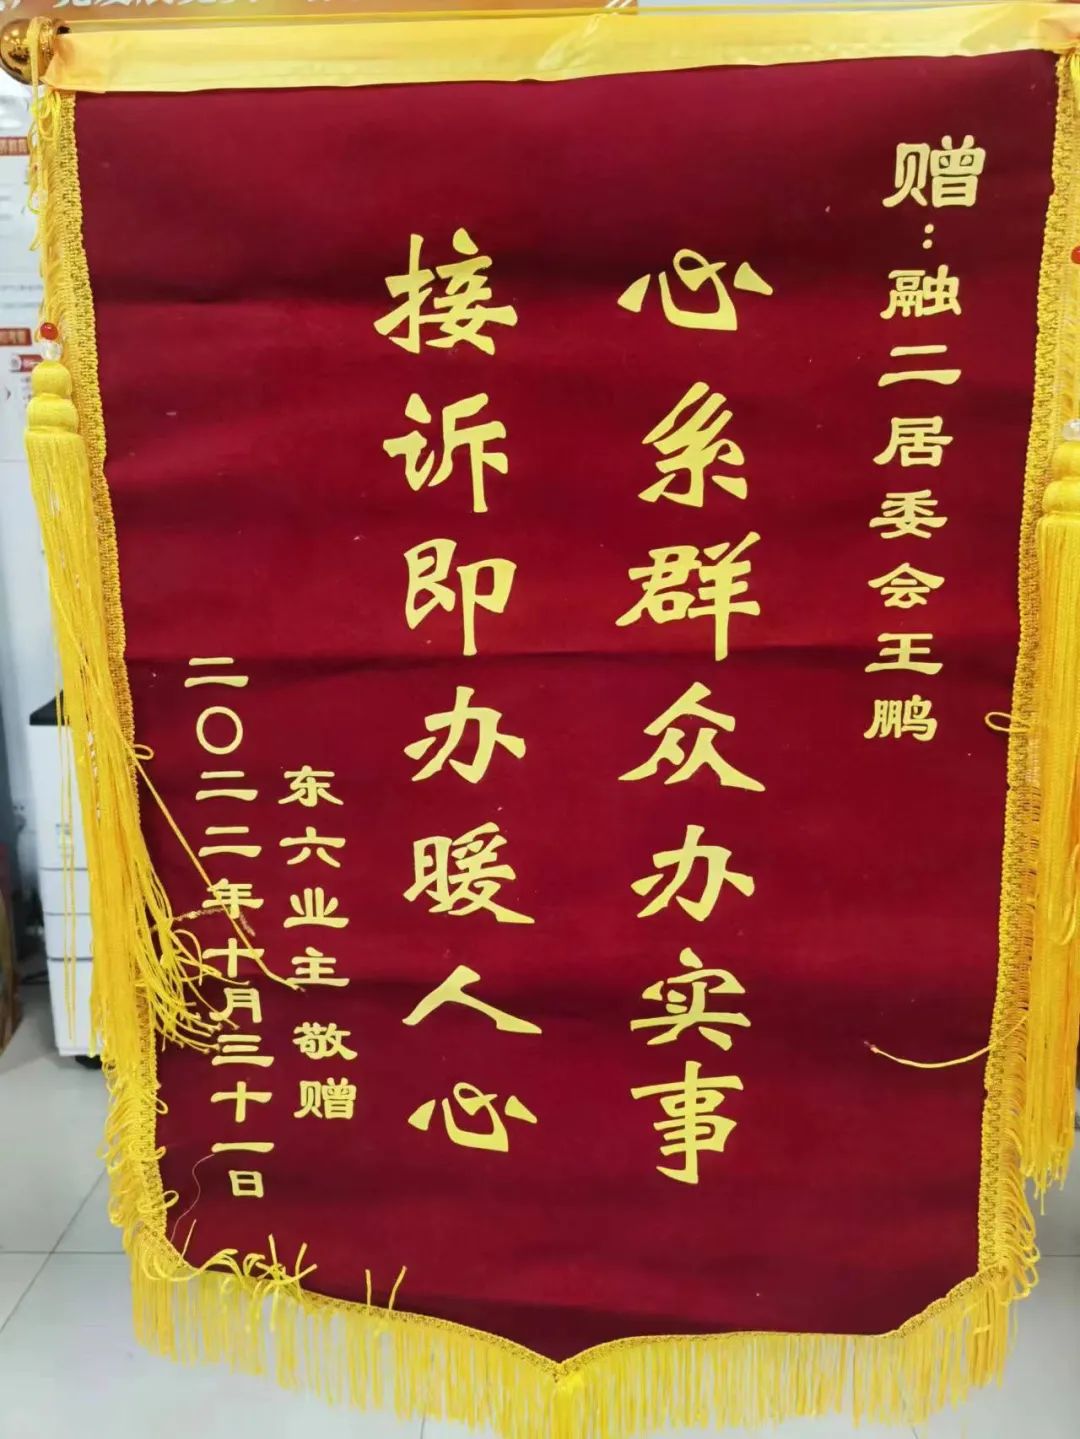 赠:融二居委会王鹏
心系群众办实事
接诉即办暖人心
东六业主 敬赠
二〇二二年十月三十一日